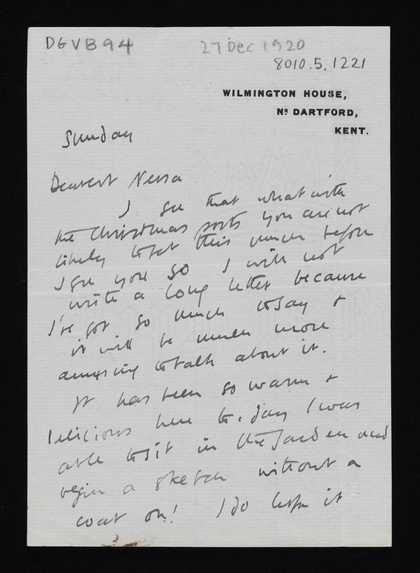 DGVB94
27 Dec 1920
8010.5.1221
WILMINGTON HOUSE,
NR DARTFORD,
KENT.
Sunday
Dearest Nessa
I see that what with
the Christmas posts you are not
likely to get this much before
I see you so I will not
write a long letter because
I've got so much to say &
it will be much more
amusing to talk about it.
It has been so warm &
delicious here to-day I was
able to sit in the garden and
begin a sketch without a
coat on! I do hope it